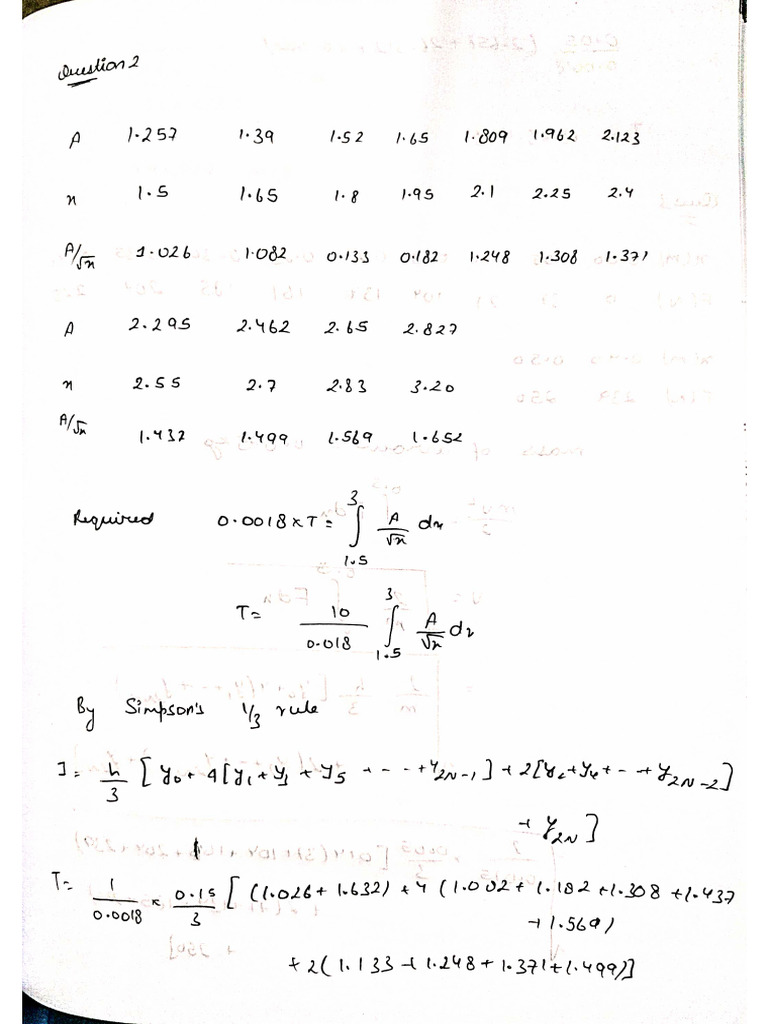 Question 2
A 1.257 1.39 1.52 1.65 1.809 1.962 2.123
x 1.5 1.65 1.8 1.95 2.1 2.25 2.4
A/√x 1.026 1.082 0.133 0.182 1.248 1.308 1.371
A 2.295 2.462 2.65 2.827
x 2.55 2.7 2.83 3.20
A/√x 1.432 1.499 1.569 1.652
Required 0.0018 x T = ∫_{1.5}^{3} A/√x dx
T = 10/0.018 ∫_{1.5}^{3} A/√x dx
By Simpson's 1/3 rule
I = h/3 [y₀ + 4[y₁ + y₃ + y₅ + -- + y_{2N-1}] + 2[y₂ + y₄ + -- + y_{2N-2}]
+ y_{2N}]
T = 1/0.0018 x 0.15/3 [(1.026 + 1.632) + 4 (1.002 + 1.182 + 1.308 + 1.437
+ 1.569)
+ 2(1.133 + 1.248 + 1.371 + 1.499)]